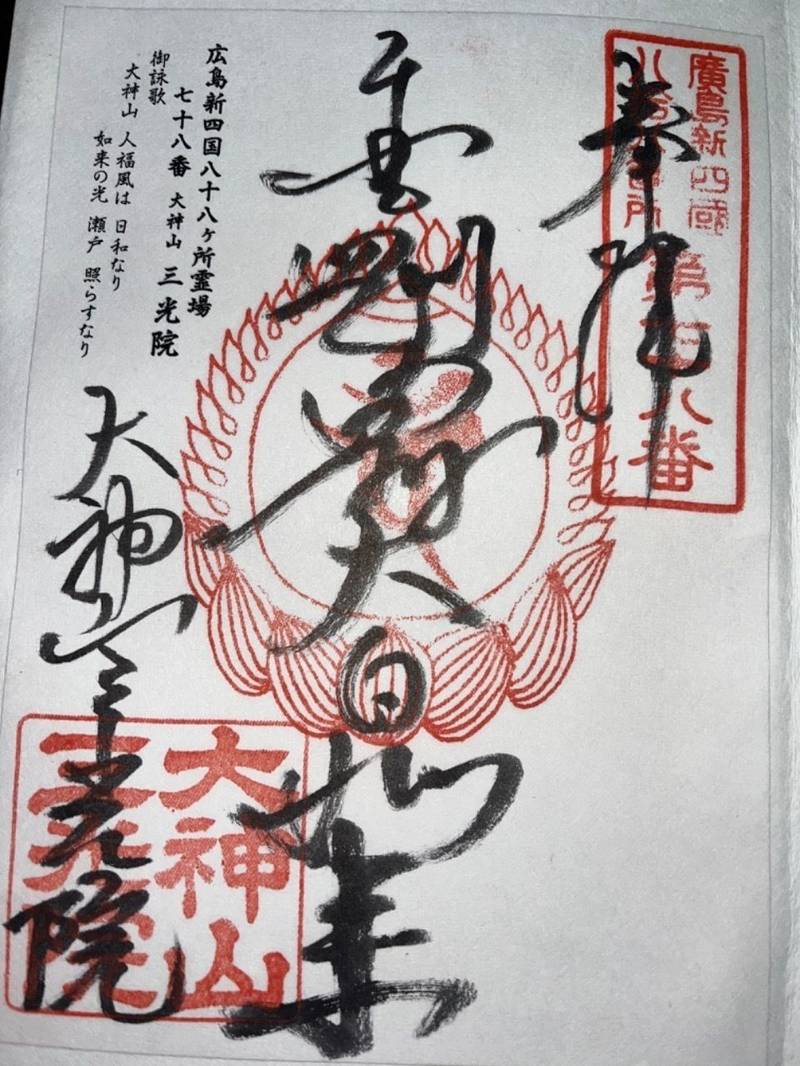 奉拝
廣島新四國
第七十八番
金剛界大日如来
広島新四国八十八ヶ所霊場
七十八番 大神山 三光院
御詠歌
大神山 人福風は 日和なり
如来の光 瀬戸 照らすなり
大神山三光院
大神山
三光院